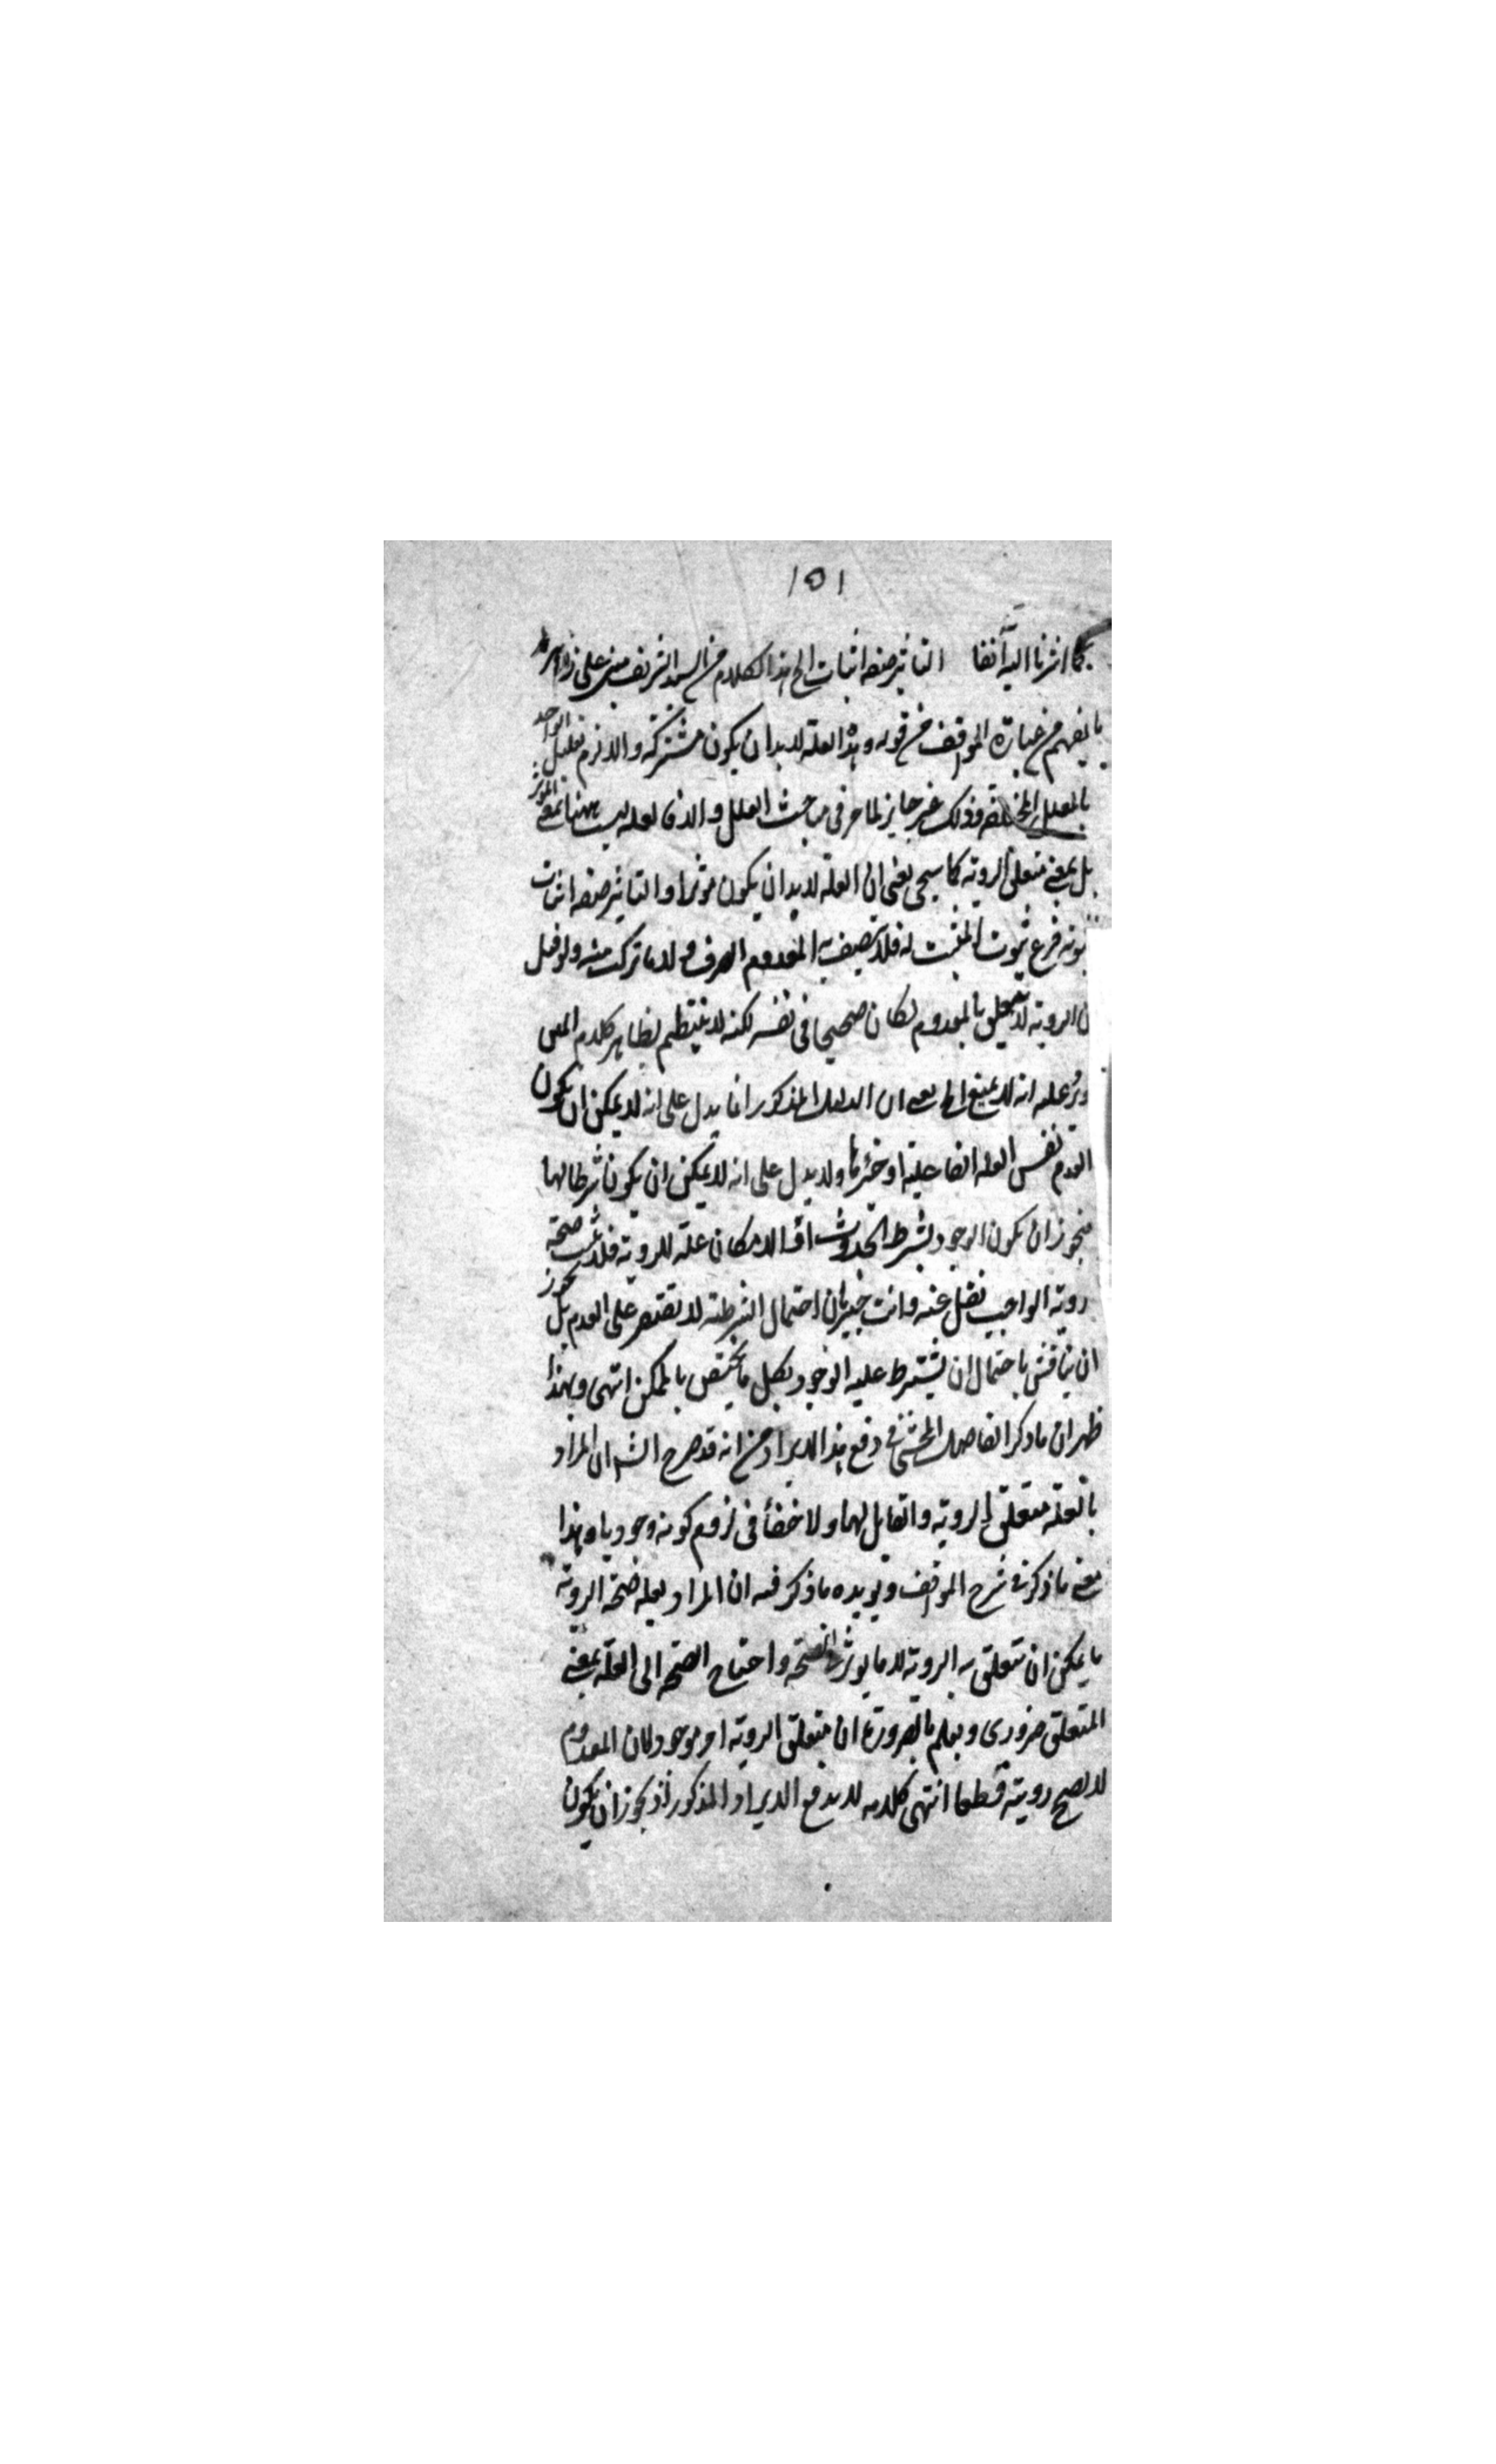 ١٥١
كما اشرنا اليه آنفا التاثير صفة اثبات الخ هذا الكلام من السيد الشريف مبنى على
ما يفهم من عبارة المواقف من قوله وهذه العلة لا بد ان يكون مشتركة والا لزم تعليل الواحد
بالعلل المختلفة وذلك غير جايز لما مر فى مباحث العلل والا فالعلة ليست ههنا بمعنى المؤثر
بل بمعنى متعلق الروية كما سيجى يعنى ان العلة لا بد ان يكون مؤثرا والتاثير صفة اثبات
ثبوته فرع ثبوت المثبت له فلا تصف به المعدوم الصرف ولا ما تركب منه ولو قيل
ان الروية لا تتعلق بالمعدوم لكان صحيحا فى نفسه لكنه لا ينتظم بظاهر كلام المص
ويرد عليه انه لا يمنع الخ يعنى ان الدليل المذكور انما يدل على انه لا يمكن ان يكون
العدم نفس العلة الفاعلية او جزءها ولا يدل على انه لا يمكن ان يكون شرطا لها
فيجوز ان يكون الوجود بشرط الحدوث او الامكان علة للروية فلا يثبت صحة
روية الواجب نقل عنه وانت خبير بان احتمال الشرطية لا يقتصر على العدم بل يجوز
ان يناقش باحتمال ان يشترط علية الوجود بكل ما يختص بالممكن انتهى وبهذا
ظهر ان ما ذكر الفاضل المحشى فى دفع هذا الايراد من انه قد صرح الشه ان المراد
بالعلة متعلق الروية والقابل لها ولا خفأ فى لزوم كونه وجوديا وهذا
معنى ما ذكره فى شرح المواقف ويويده ما ذكر فيه ان المراد بعلة صحة الروية
ما يمكن ان تتعلق به الروية لا ما يوثر فى الصحة واحتياج الصحة الى العلة بمعنى
المتعلق ضرورى ويعلم بالضرورة ان متعلق الروية امر موجود لان المعدوم
لا يصح رويته قطعا انتهى كلامه لا يدفع الايراد المذكور اذ يجوز ان يكون